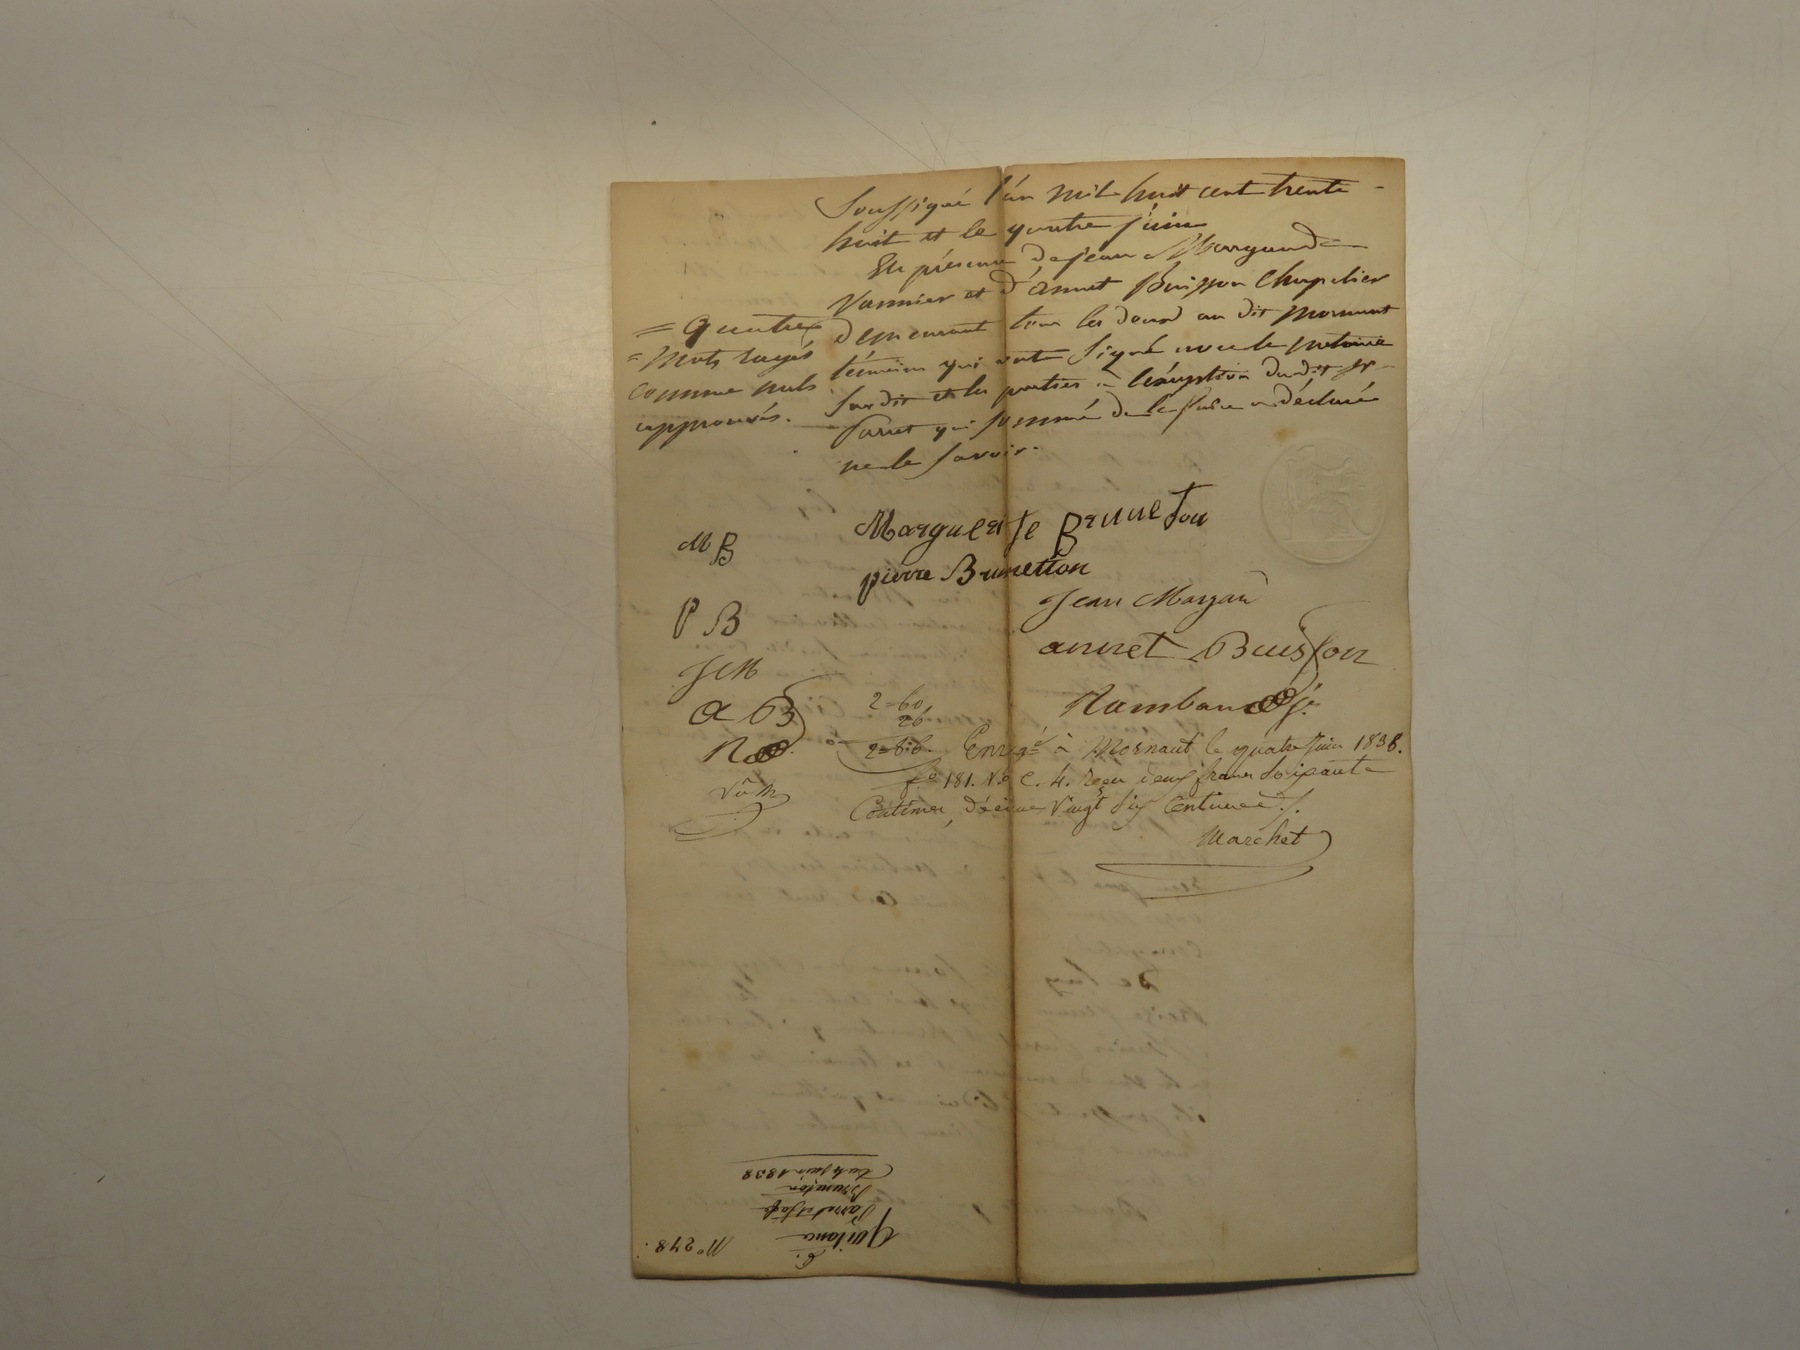 Soussigné l'an mil huit cent trente
huit et le quatre juin
En présence de jean Margand
Vannier et d'annet Buisson Chapelier
demeurant tous les deux au dit Mornant
témoins qui ont signé avec le notaire
susdit et les parties à l'éxception dudit
Parret qui sommé de le faire a déclaré
ne le savoir.
= quatre
= mots rayés
comme nuls
approuvés.
Marguerite Bruneton
pierre Brunetton
Jean Margan
annet Buisson
Rambaud
M B
P B
J M
a B
R
2=60
26
2=86.
Enrgé à Mornant le quatre juin 1838.
fo 181. Vo C. 4. Reçu deux francs soixante
Centimes, décime Vingt six Centimes.
Marchet
No 278.
Quitance
Parret et
Bruneton
Du 4 juin 1838